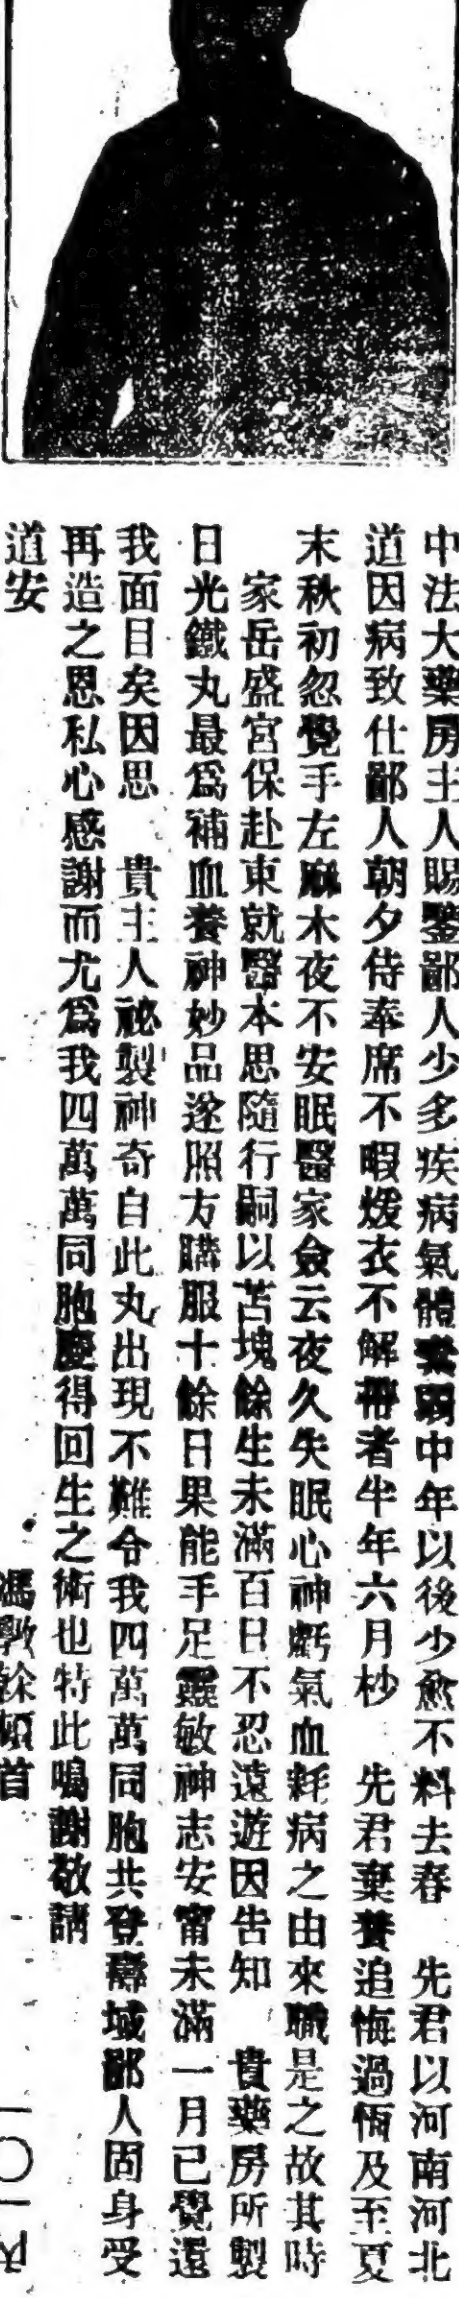 中法大藥房主人賜鑒鄙人少多疾病氣體弱中年以後少愈不料去春　先君以河南河北
道因病致仕鄙人朝夕侍奉席不暇煖衣不解帶者半年六月杪　先君棄養追悔過及至夏
末秋初忽覺手左麻木夜不安眠醫家僉云夜久失眠心神虧氣血耗病之由來職是之故其時
家岳盛宮保赴東就醫本思隨行嗣以苫塊餘生未滿百日不忍遠遊因告知　貴藥房所製
日光鐵丸最爲補血養神妙品遂照方購服十餘日果能手足靈敏神志安甯未滿一月已覺還
我面目矣因思　貴主人祕製神奇自此丸出現不難令我四萬萬同胞共登壽域鄙人固身受
再造之恩私心感謝而尤爲我四萬萬同胞慶得回生之術也特此鳴謝敬請
道安
馮敦頓首